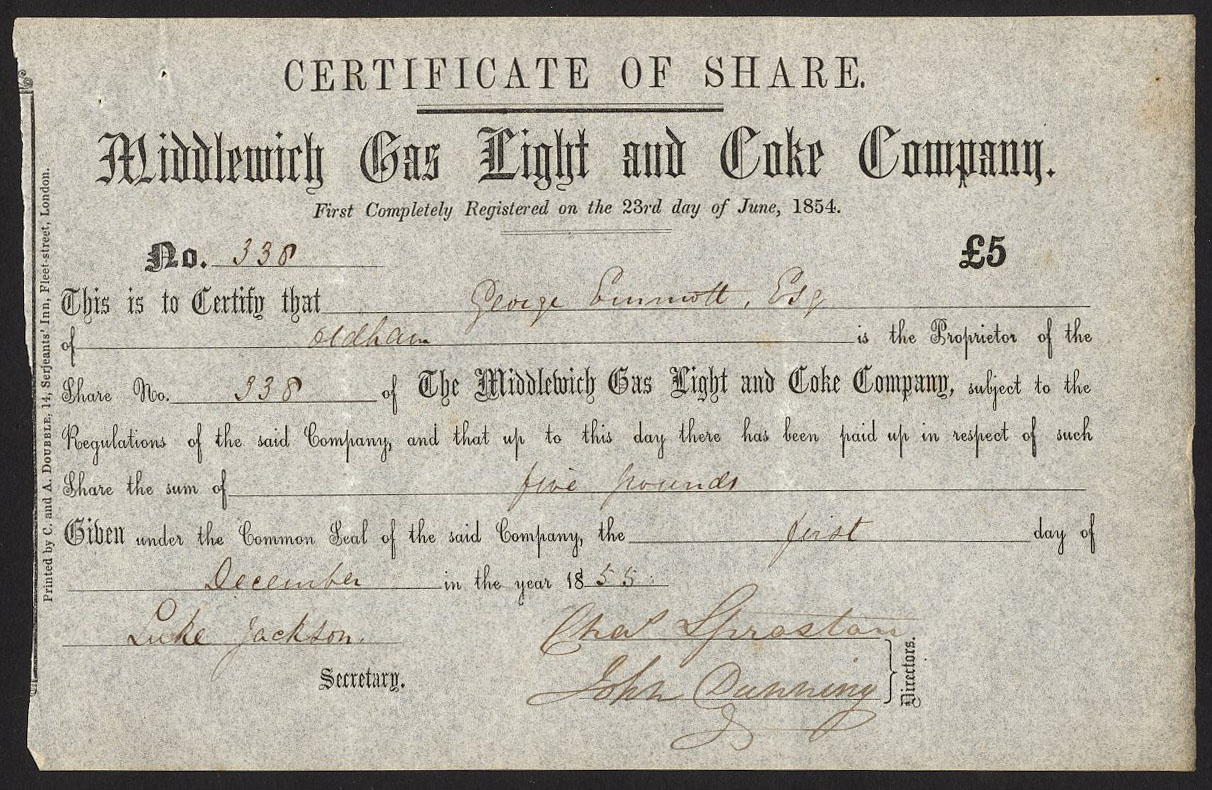 CERTIFICATE OF SHARE.
Middlewich Gas Light and Coke Company.
First Completely Registered on the 23rd day of June, 1854.
No. 338 £5
This is to Certify that George Emmott, Esq
of Oldham is the Proprietor of the
Share No. 338 of The Middlewich Gas Light and Coke Company, subject to the
Regulations of the said Company, and that up to this day there has been paid up in respect of such
Share the sum of five pounds
Given under the Common Seal of the said Company, the first day of
December in the year 1855.
Luke Jackson. Chas Sproston
Secretary. John Dunning
Directors.
Printed by C. and A. DOUBBLE, 14, Serjeants' Inn, Fleet-street, London.